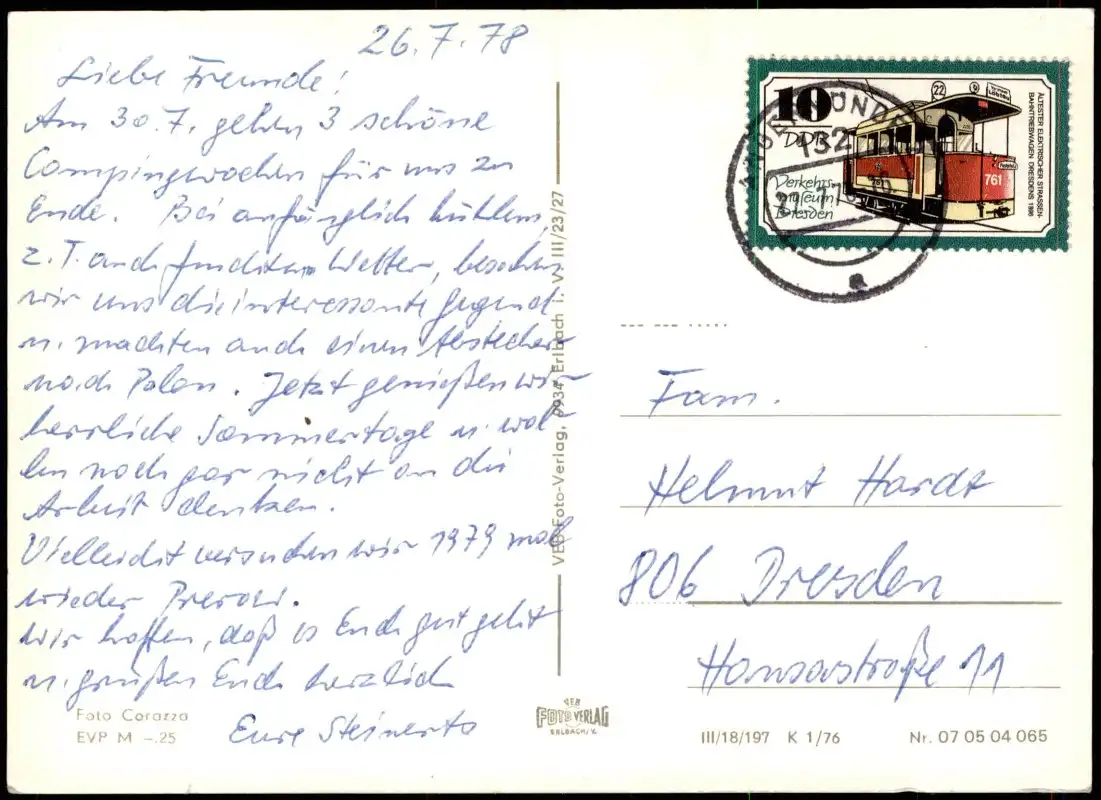 26.7.78
Liebe Freunde!
Am 30.7. gehen 3 schöne
Campingwochen für uns zu
Ende. Bei anfänglich kühlem,
z.T. auch feuchtem Wetter, besahen
wir uns die interessante Gegend
u. machten auch einen Abstecher
nach Polen. Jetzt genießen wir
herrliche Sommertage u. wol-
len noch gar nicht an die
Arbeit denken.
Vielleicht versuchen wir 1979 mal
wieder Prerow.
Wir hoffen, daß es Euch gut geht
u. grüßen Euch herzlich
Eure Steinerts
Foto Corazza
EVP M -.25
VEB Foto-Verlag, 9934 Erlbach i. V. III/23/27
VEB
FOTO VERLAG
ERLBACH/V.
10
DDR
Verkehrs-
museum
Dresden
22
9
761
ÄLTESTER ELEKTRISCHER STRASSEN-
BAHNTRIEBWAGEN DRESDENS 1896
132
a
Fam.
Helmut Hardt
806 Dresden
Hansastraße 11
III/18/197 K 1/76 Nr. 07 05 04 065